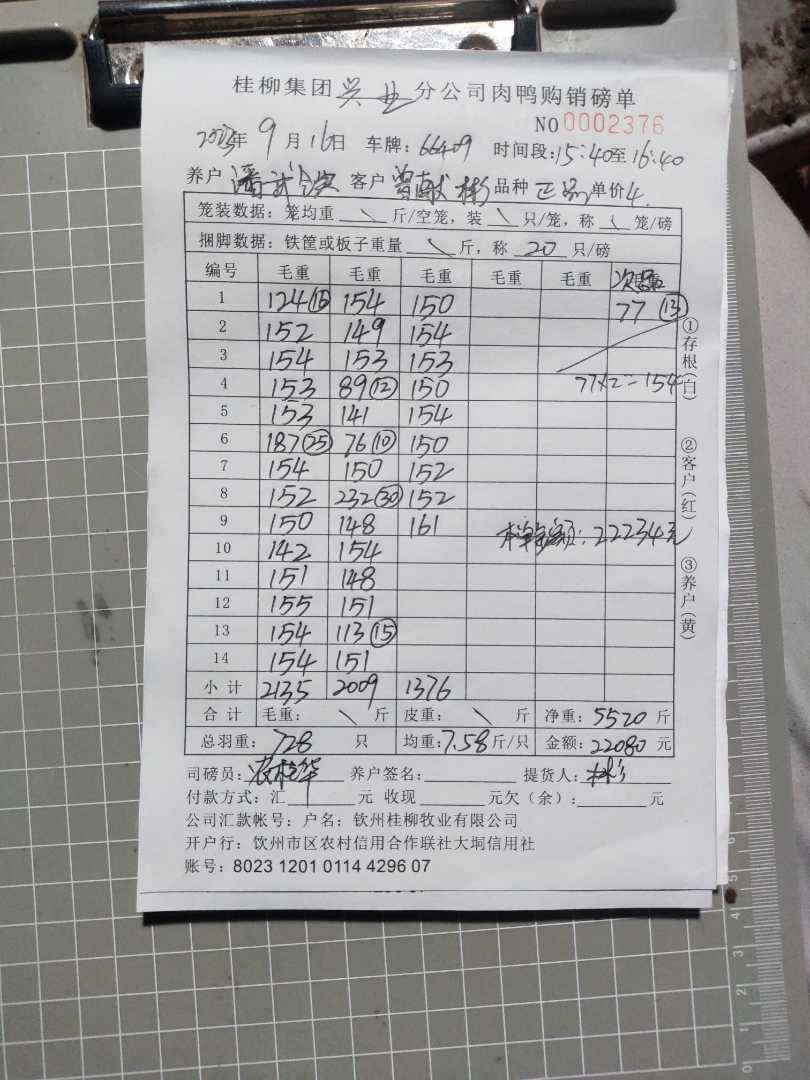 桂柳集团兴业分公司肉鸭购销磅单
NO 0002376
2023年 9 月 16日 车牌: 66409 时间段: 15:40至 16:40
养户 潘武 客户 曾献彬 品种 正品 单价 4.
笼装数据: 笼均重 \ 斤/空笼, 装 \ 只/笼, 称 \ 笼/磅
捆脚数据: 铁筐或板子重量 \ 斤, 称 20 只/磅
编号 毛重 毛重 毛重 毛重 毛重
1 124⑯ 154 150 77 ⑬
2 152 149 154
3 154 153 153
4 153 89⑫ 150 77×2=154
5 153 141 154
6 187㉕ 76⑩ 150
7 154 150 152
8 152 232㉚ 152
9 150 148 161 22234元
10 142 154
11 151 148
12 155 151
13 154 113⑮
14 154 151
小计 2135 2009 1376
合计 毛重: \ 斤 皮重: \ 斤 净重: 5520 斤
总羽重: 728 只 均重: 7.58斤/只 金额: 22080 元
司磅员: 养户签名: 提货人: 彬
付款方式: 汇 元 收现 元欠(余): 元
公司汇款帐号: 户名: 钦州桂柳牧业有限公司
开户行: 钦州市区农村信用合作联社大垌信用社
账号: 8023 1201 0114 4296 07
①存根(白)
②客户(红)
③养户(黄)